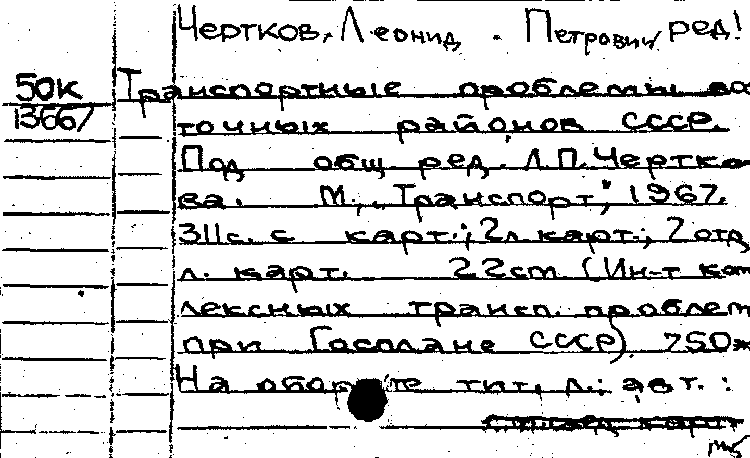 Чертков, Леонид Петрович, ред!
50к Транспортные проблемы вос
13667 точных районов СССР.
Под общ. ред. Л.П. Чертко-
ва. М., „Транспорт", 1967.
311с. с карт.; 2л. карт.; 2 отд.
л. карт. 22см (Ин-т комп
лексных трансп. проблем
при Госплане СССР). 750ж
На обороте тит. л.: авт.: